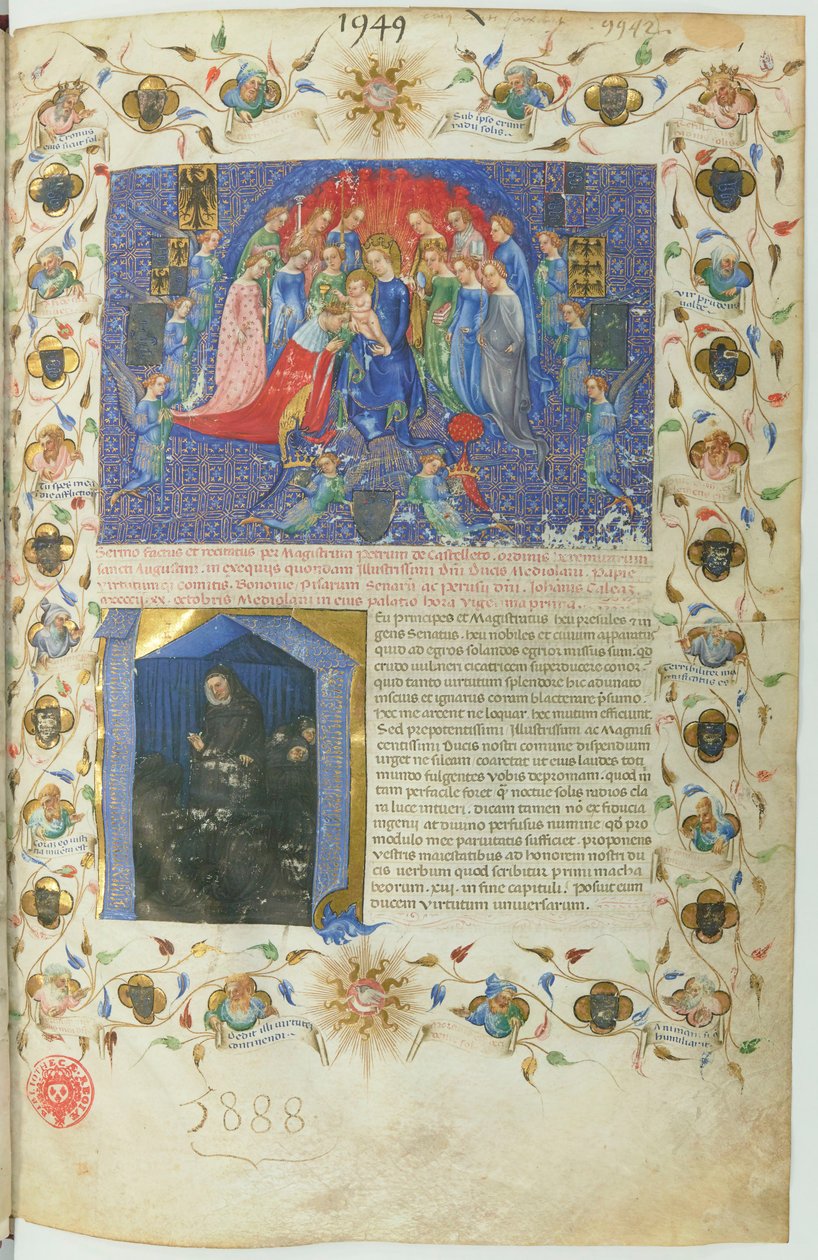 1949
9942
Tronus
eius sicut sol
Sub ipso erunt
radii solis.
Vir prudens
valde
Tu spes mea
die afflictionis
Terribiliter ma
gnificatus es
Sermo factus et recitatus per Magistrum Petrum de Castelleto. ordinis heremitarum
sancti Augustini. in exequijs quondam Illustrissimi Dni Ducis Mediolani. Papie
virtutumque comitis. Bononie, Pisarum Senarum ac perusii dni. Johanis Galeaz
mcccc ij. xx. octobris Mediolani in eius palatio hora vigesima prima.
Eu principes et Magistratus heu presules et in
gens Senatus. heu nobiles et civium apparatus
quid ad egros solandos egrior missus sum. qd
crudo vulneri cicatricem superducere conor.
quid tanto virtutum splendore hic adunato
inscius et ignarus coram blacterare psumo.
hec me arcent ne loquar hec mutum efficiunt.
Sed prepotentissimi Illustrissimi ac Magnifi
centissimi Ducis nostri comune dispendium
urget ne sileam coaretat ut eius laudes toti
mundo fulgentes vobis depromam. quod in
tam perfacile foret q noctue solis radios cla
ra luce intueri. dicam tamen no ex fiducia
ingenii at divino perfusus numine qd pro
modulo mee parvitatis sufficiet. proponens
vestris maiestatibus ad honorem nostri du
cis verbum quod scribitur primi macha
beorum. xvi. in fine capituli. Posuit eum
ducem virtutum universarum.
Dedit illi virtutem
continendi.
Animam suam
humiliavit
BIBLIOTHECÆ REGIÆ
5888